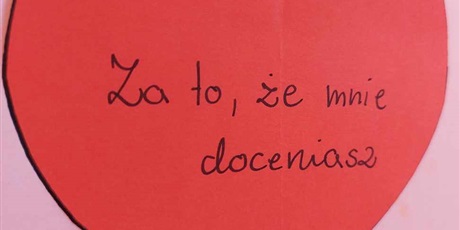 Za to, że mnie
doceniasz